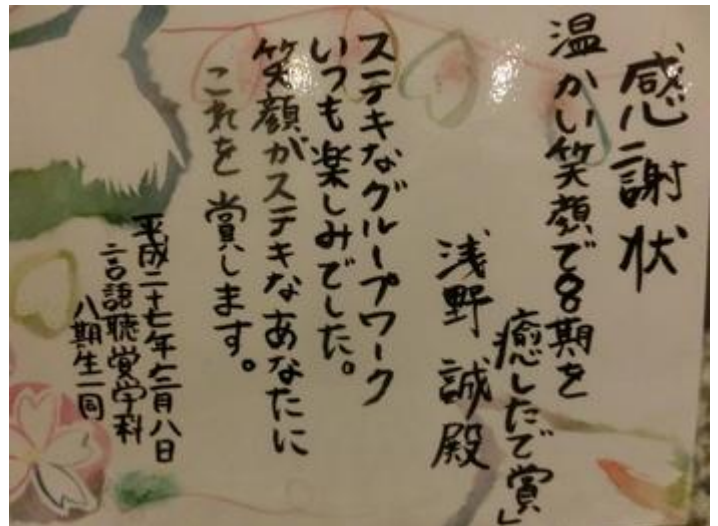 感謝状
温かい笑顔で8期を
癒したで賞」
浅野 誠殿
ステキなグループワーク
いつも楽しみでした。
笑顔がステキなあなたに
これを 賞します。
平成二十七年十二月八日
言語聴覚学科
八期生一同